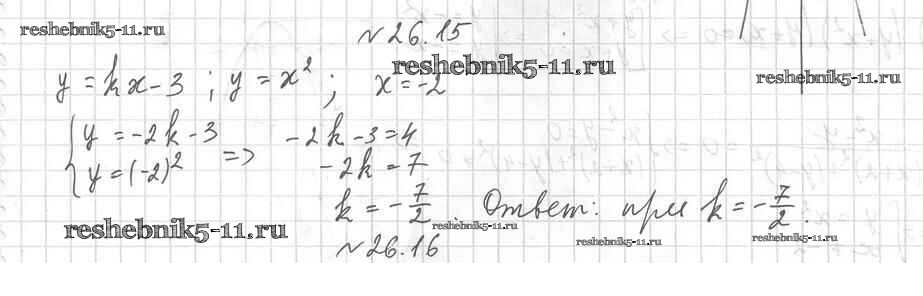 reshebnik5-11.ru
№26.15
reshebnik5-11.ru
y = kx - 3 ; y = x² ; x = -2
reshebnik5-11.ru
{ y = -2k - 3 => -2k - 3 = 4
y = (-2)² -2k = 7
k = -7/2. Ответ: при k = -7/2.
reshebnik5-11.ru
reshebnik5-11.ru
reshebnik5-11.ru
reshebnik5-11.ru
№26.16